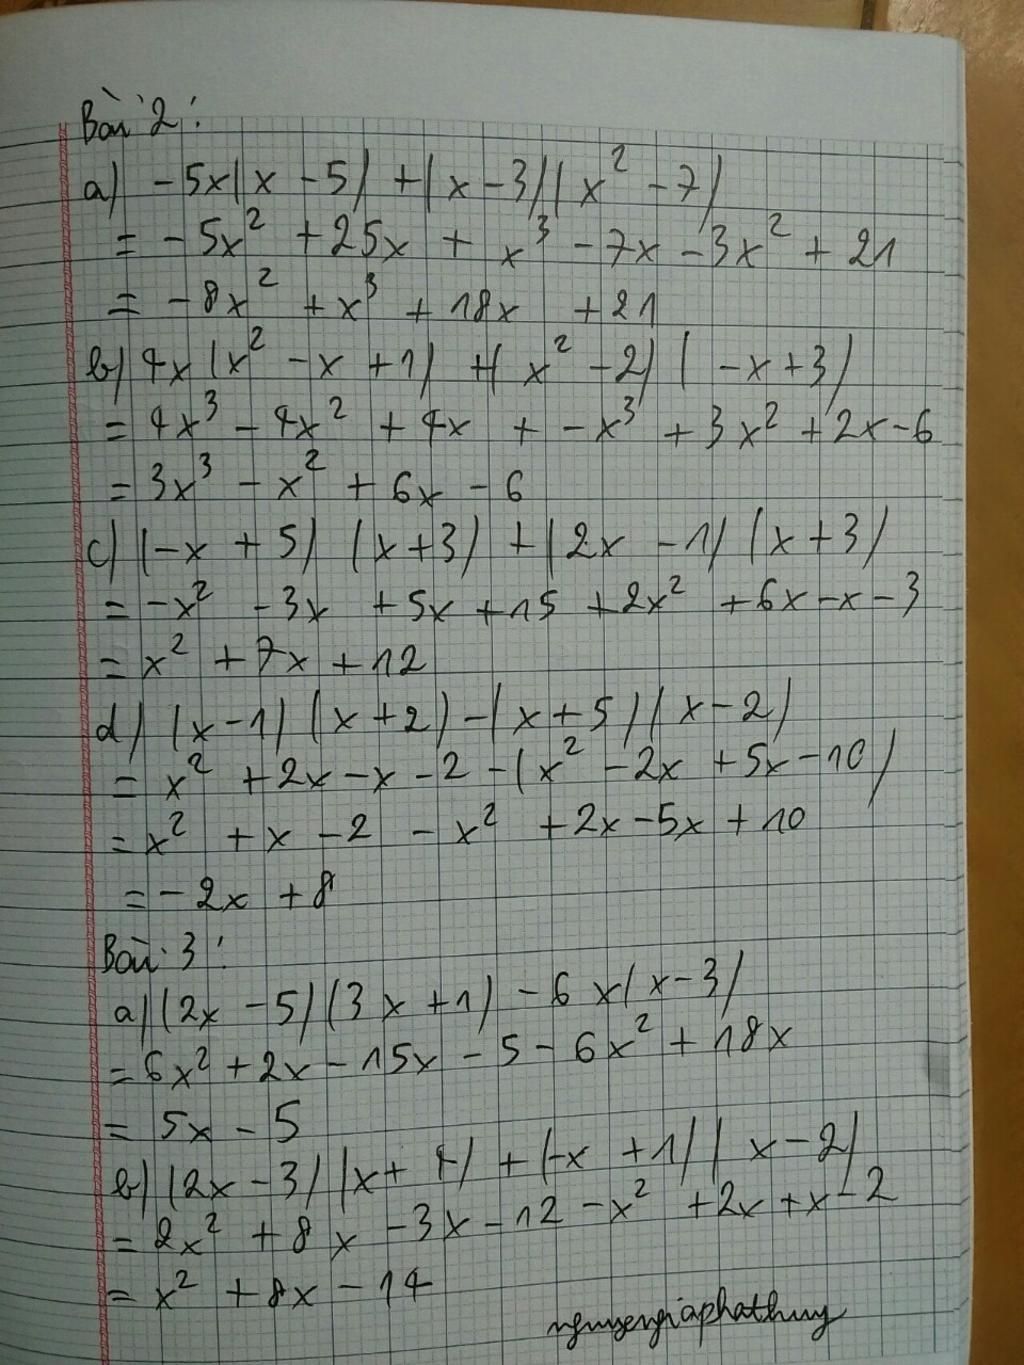 Bài 2:
a) -5x(x - 5) + (x - 3)(x² - 7)
= -5x² + 25x + x³ - 7x - 3x² + 21
= -8x² + x³ + 18x + 21
b) 4x(x² - x + 1) + (x² - 2)(-x + 3)
= 4x³ - 4x² + 4x + -x³ + 3x² + 2x - 6
= 3x³ - x² + 6x - 6
c) (-x + 5)(x + 3) + (2x - 1)(x + 3)
= -x² - 3x + 5x + 15 + 2x² + 6x - x - 3
= x² + 7x + 12
d) (x - 1)(x + 2) - (x + 5)(x - 2)
= x² + 2x - x - 2 - (x² - 2x + 5x - 10)
= x² + x - 2 - x² + 2x - 5x + 10
= -2x + 8
Bài 3:
a) (2x - 5)(3x + 1) - 6x(x - 3)
= 6x² + 2x - 15x - 5 - 6x² + 18x
= 5x - 5
b) (2x - 3)(x + 4) + (-x + 1)(x - 2)
= 2x² + 8x - 3x - 12 - x² + 2x + x - 2
= x² + 8x - 14
nguyengiaphathuy